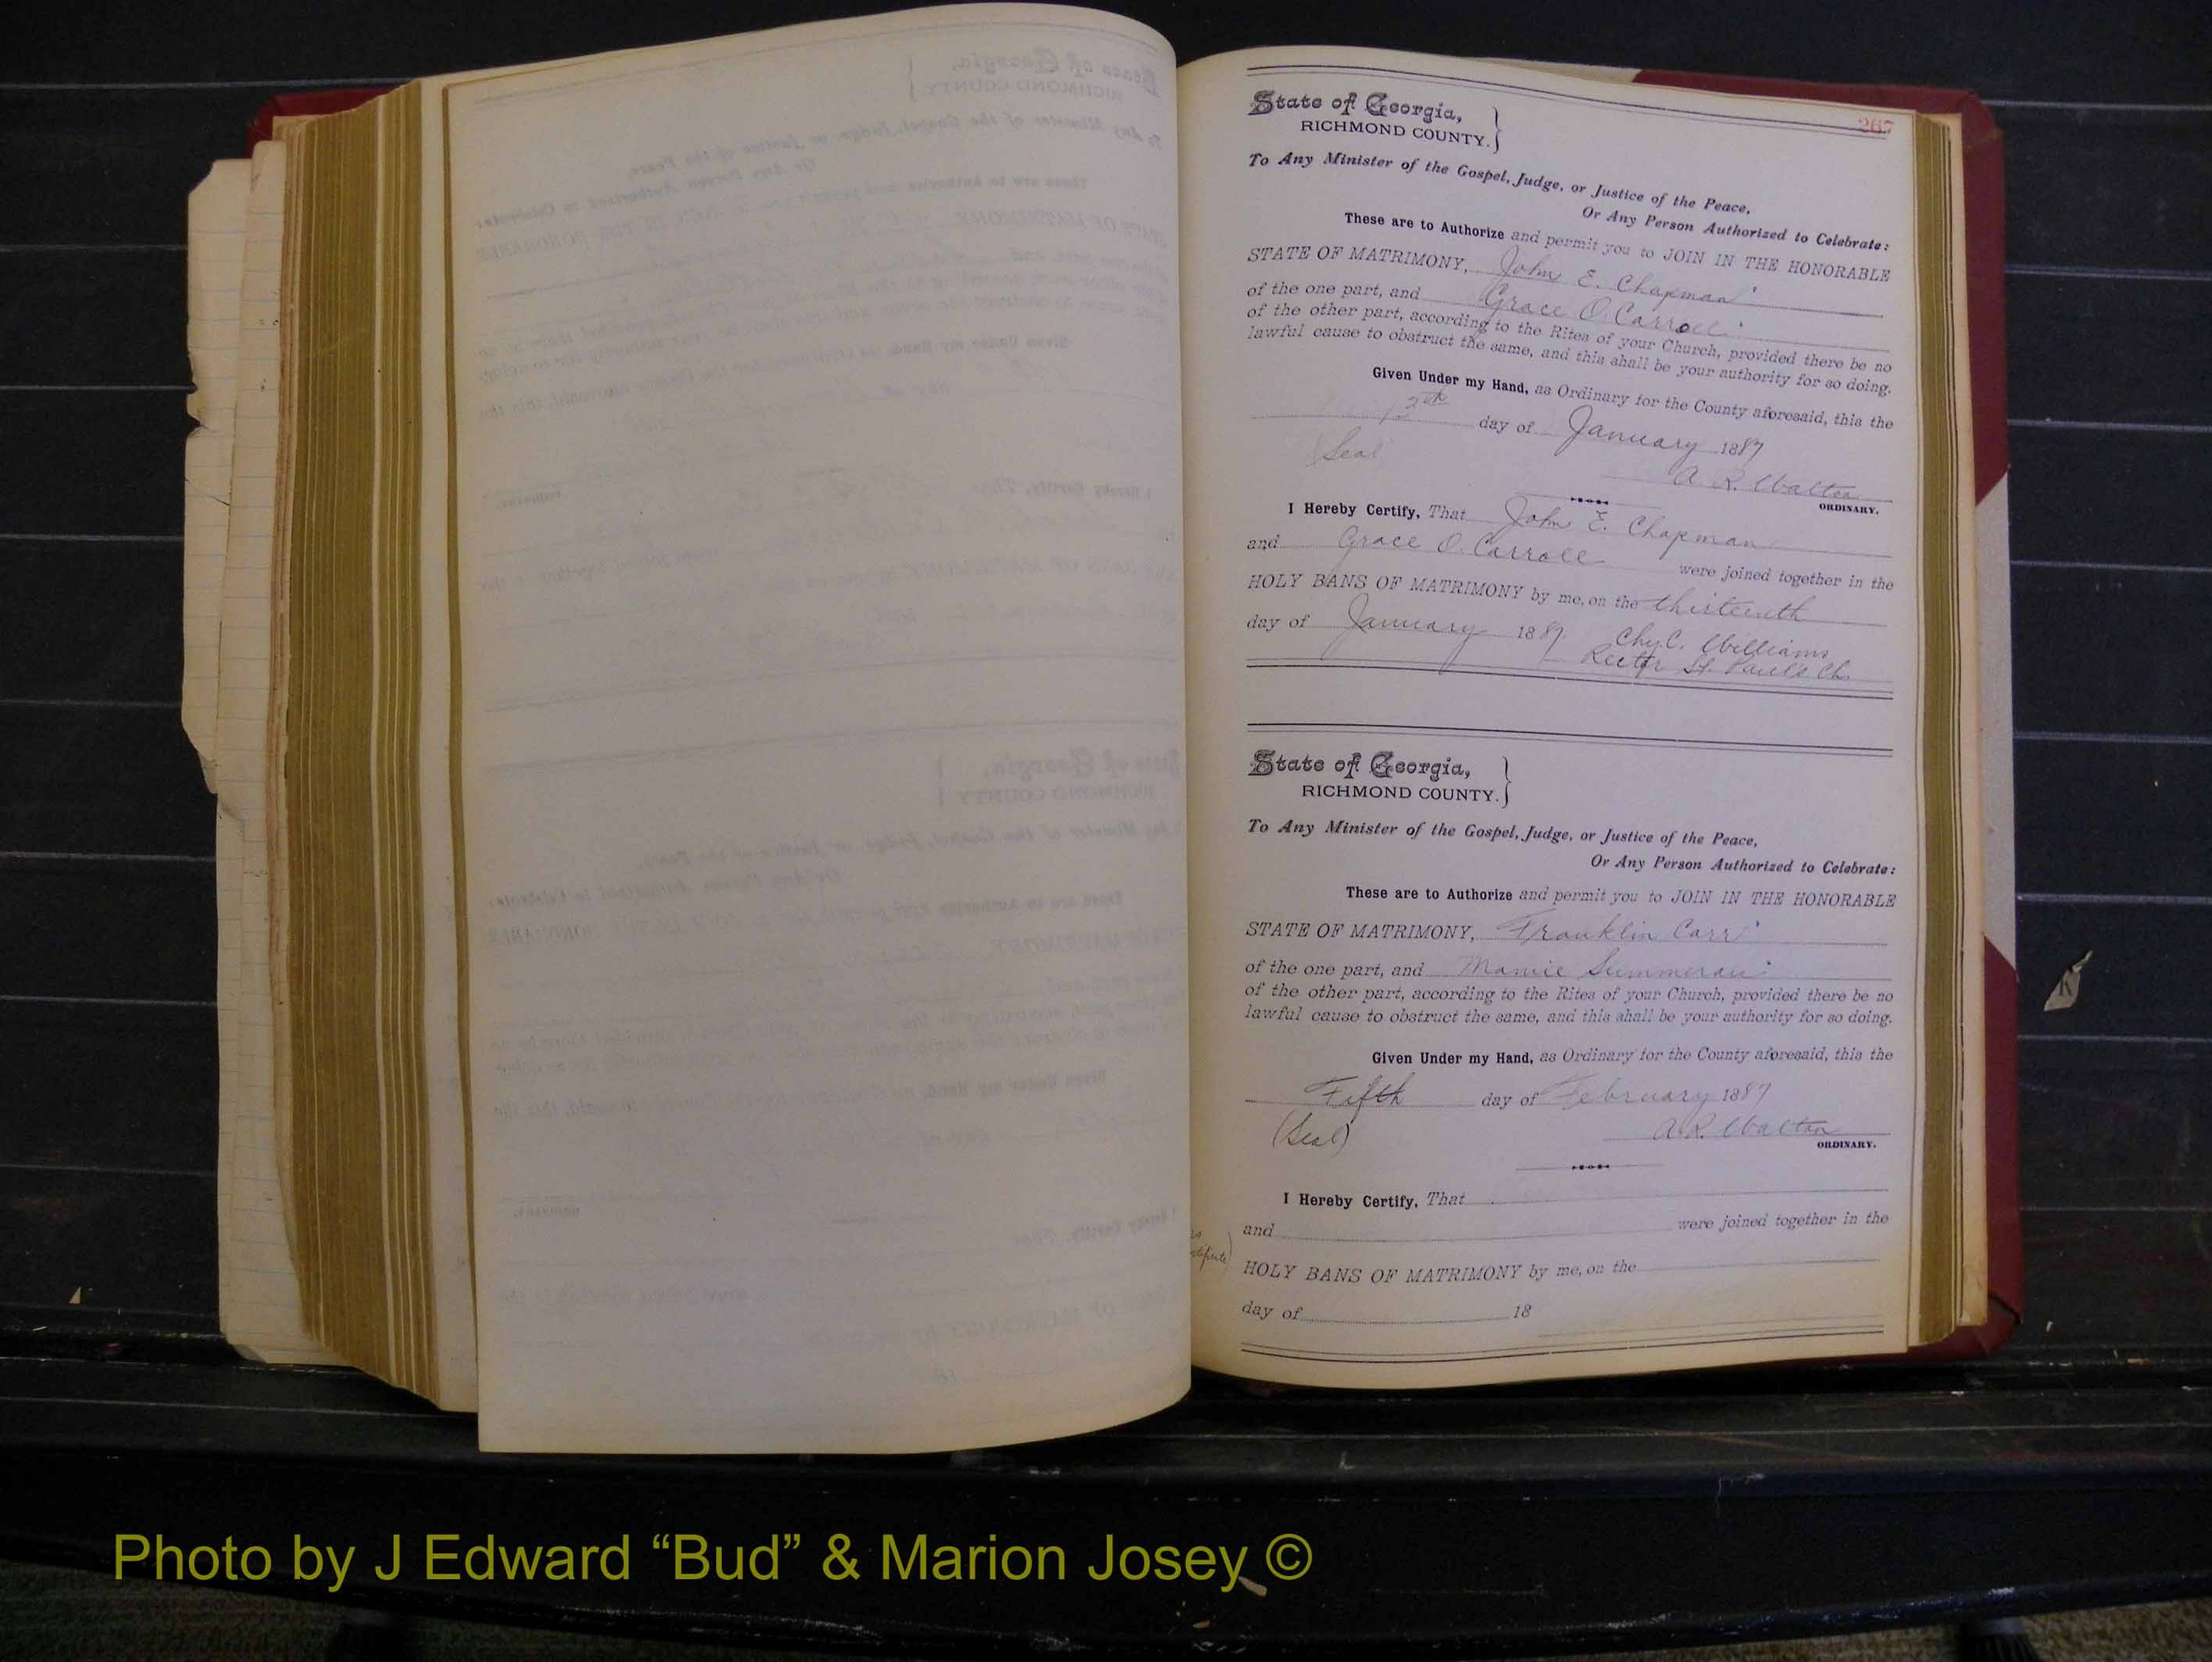 267
State of Georgia,
RICHMOND COUNTY.
To Any Minister of the Gospel, Judge, or Justice of the Peace,
Or Any Person Authorized to Celebrate:
These are to Authorize and permit you to JOIN IN THE HONORABLE
STATE OF MATRIMONY, John E. Chapman
of the one part, and Grace O. Carroll
of the other part, according to the Rites of your Church, provided there be no
lawful cause to obstruct the same, and this shall be your authority for so doing.
Given Under my Hand, as Ordinary for the County aforesaid, this the
13th day of January 1887
Seal
A. R. Walton
ORDINARY.
I Hereby Certify, That John E. Chapman
and Grace O. Carroll were joined together in the
HOLY BANS OF MATRIMONY by me, on the thirteenth
day of January 1887 C. Williams
Rector St. Paul's Ch.
State of Georgia,
RICHMOND COUNTY.
To Any Minister of the Gospel, Judge, or Justice of the Peace,
Or Any Person Authorized to Celebrate:
These are to Authorize and permit you to JOIN IN THE HONORABLE
STATE OF MATRIMONY, Franklin Carr
of the one part, and Mamie Summerau
of the other part, according to the Rites of your Church, provided there be no
lawful cause to obstruct the same, and this shall be your authority for so doing.
Given Under my Hand, as Ordinary for the County aforesaid, this the
Fifth day of February 1887
(Seal)
A. R. Walton
ORDINARY.
I Hereby Certify, That
and were joined together in the
HOLY BANS OF MATRIMONY by me, on the
day of 18
Photo by J Edward “Bud” & Marion Josey ©